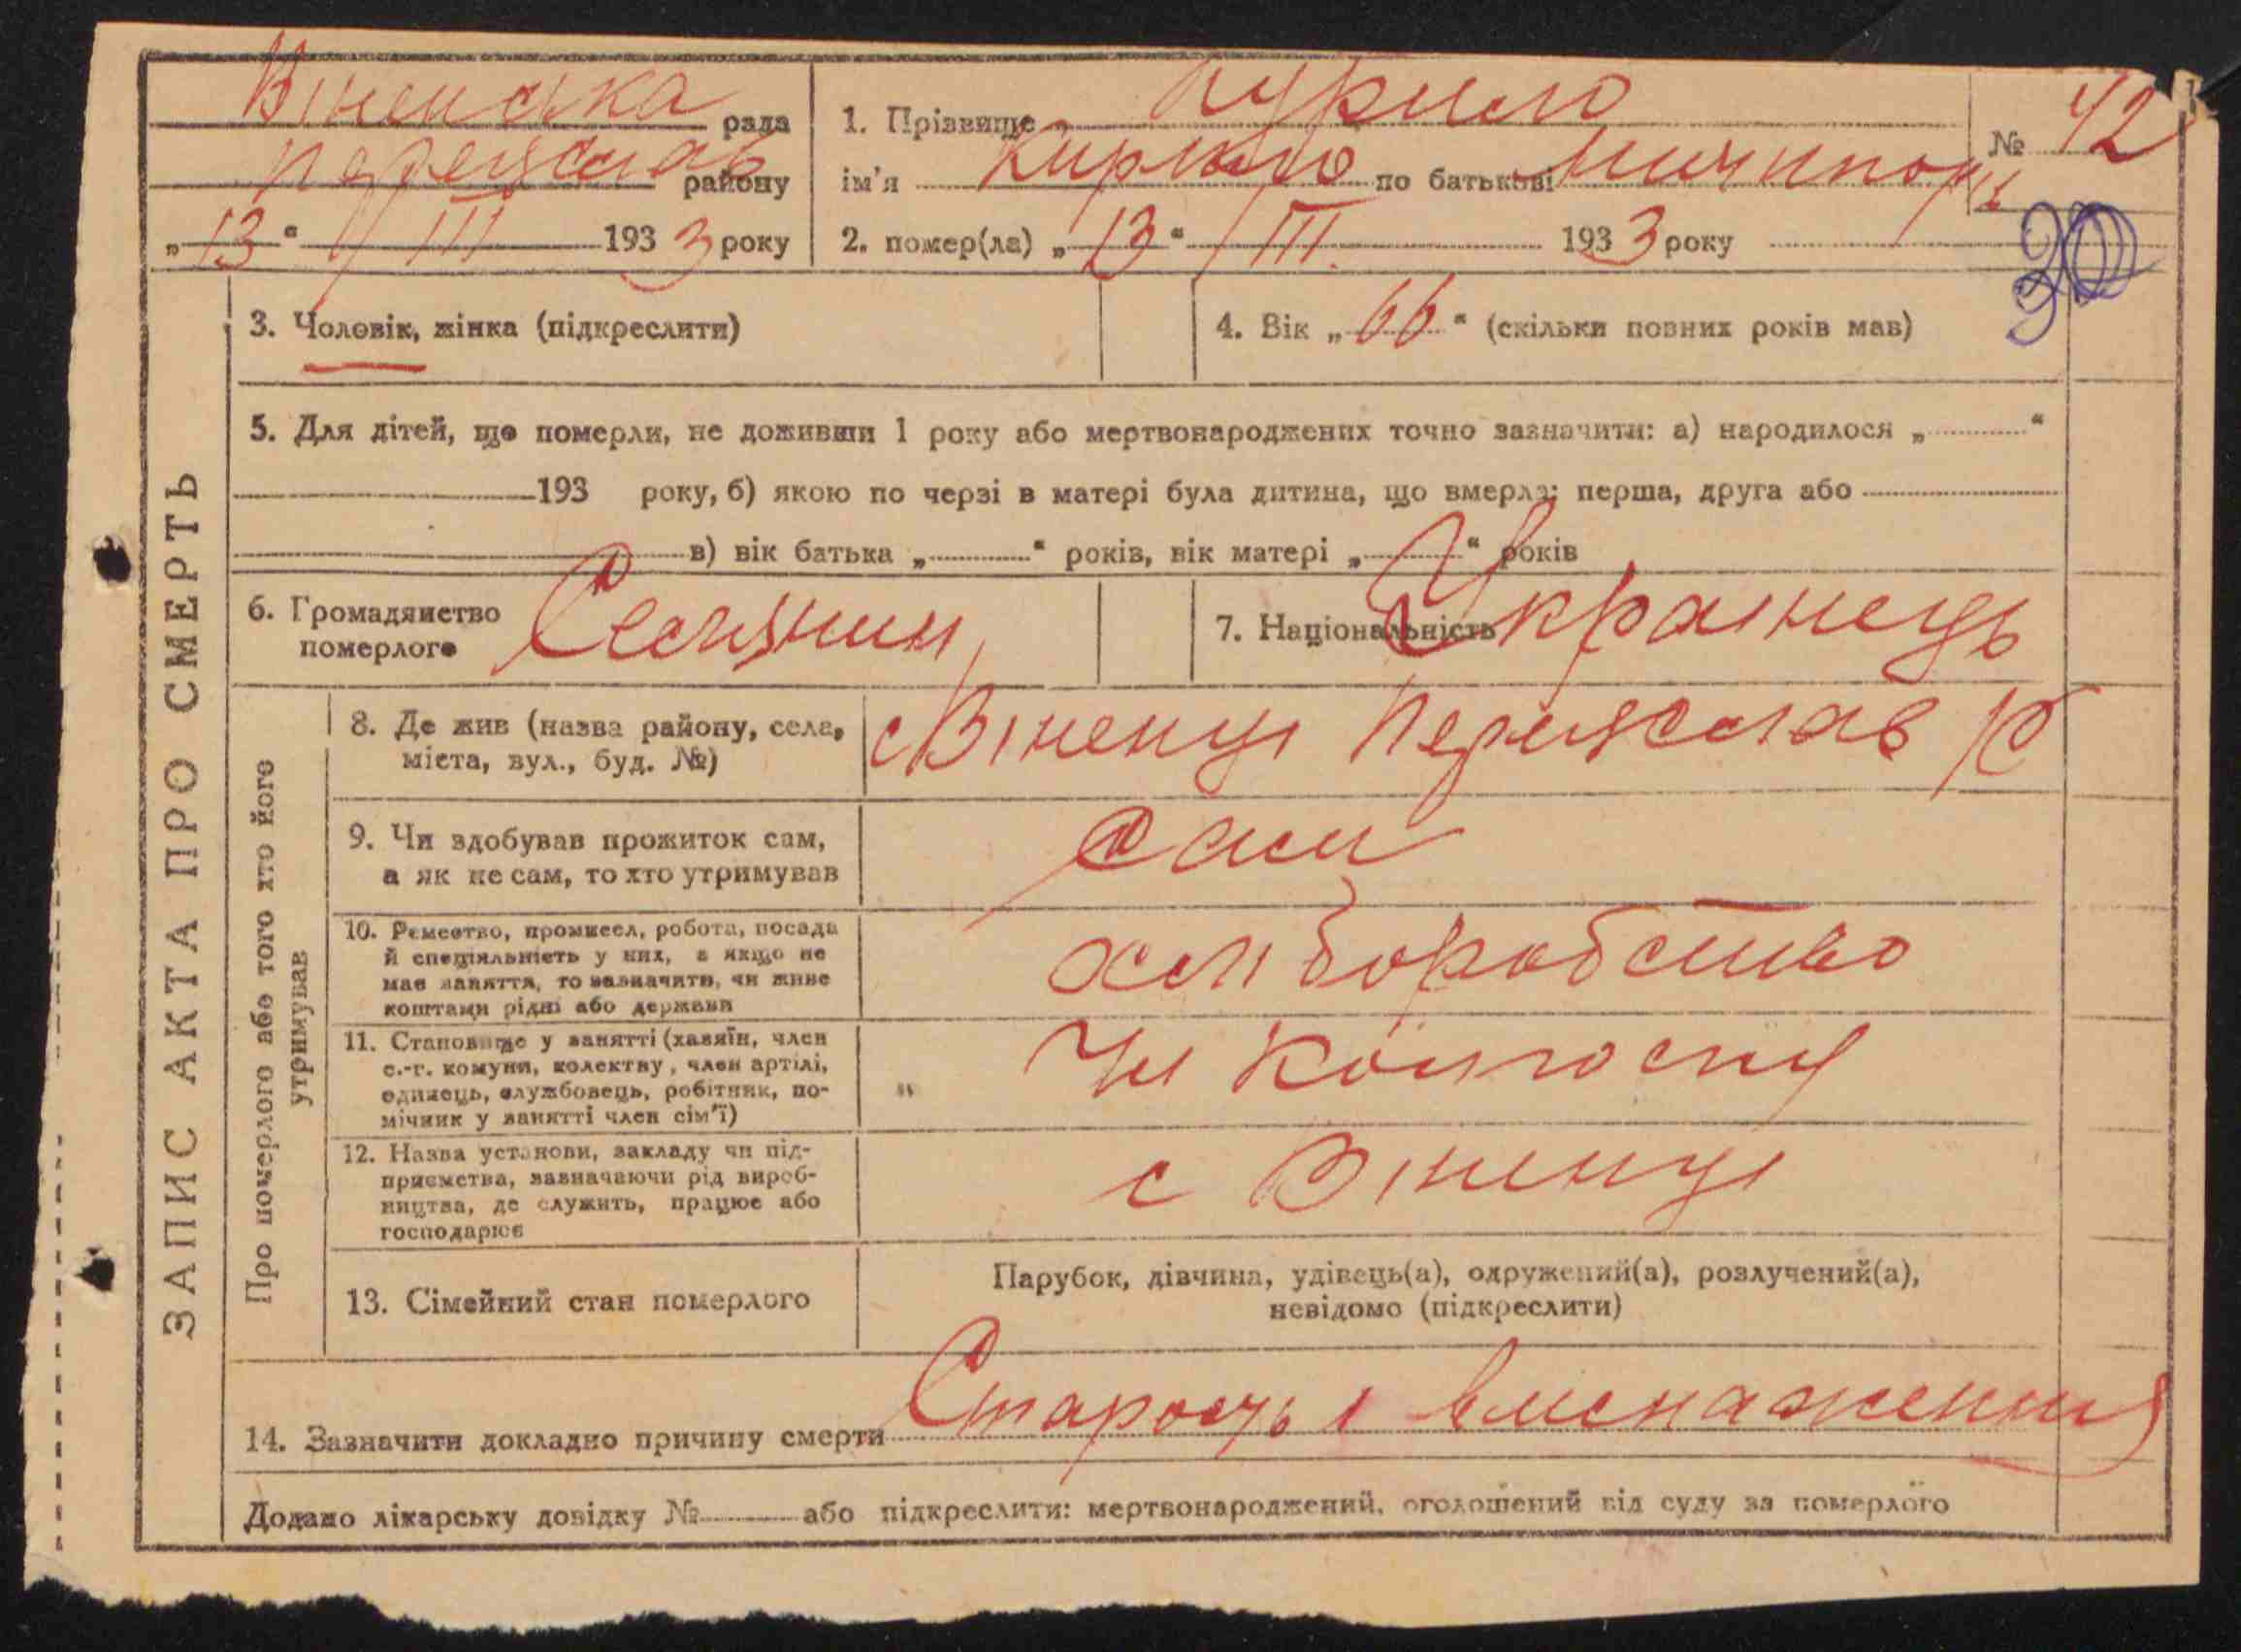 Віненська рада
Переяслав району
„13“ / III 1933 року
1. Прізвище Курило
ім’я Кирило по батькові Ничипор
№ 42
2. помер(ла) „13“ / III. 1933 року
90
3. Чоловік, жінка (підкреслити)
4. Вік „66“ (скільки повних років мав)
5. Для дітей, що померли, не доживши 1 року або мертвонароджених точно зазначити: а) народилося „ “
193 року, б) якою по черзі в матері була дитина, що вмерла: перша, друга або
в) вік батька „ “ років, вік матері „ “ років
6. Громадянство
померлого
Селянин
7. Національність Українець
ЗАПИС АКТА ПРО СМЕРТЬ
Про померлого або того хто його
утримував
8. Де жив (назва району, села,
міста, вул., буд. №)
с Віненці Переяслав /Р
9. Чи здобував прожиток сам,
а як не сам, то хто утримував
Сам
10. Ремество, промисел, робота, посада
й спеціяльність у них, а якщо не
має заняття, то зазначити, чи живе
коштами рідні або держави
хліборобство
11. Становище у занятті (хазяїн, член
с.-г. комуни, колектву, член артілі,
одинець, службовець, робітник, по-
мічник у занятті член сім’ї)
Чл колгоспу
12. Назва установи, закладу чи під-
приємства, зазначаючи рід вироб-
ництва, де служить, працює або
господарює
с Віненці
13. Сімейний стан померлого
Парубок, дівчина, удівець(а), одружений(а), розлучений(а),
невідомо (підкреслити)
14. Зазначити докладно причину смерти Старость і
Додано лікарську довідку № або підкреслити: мертвонароджений, оголошений від суду за померлого